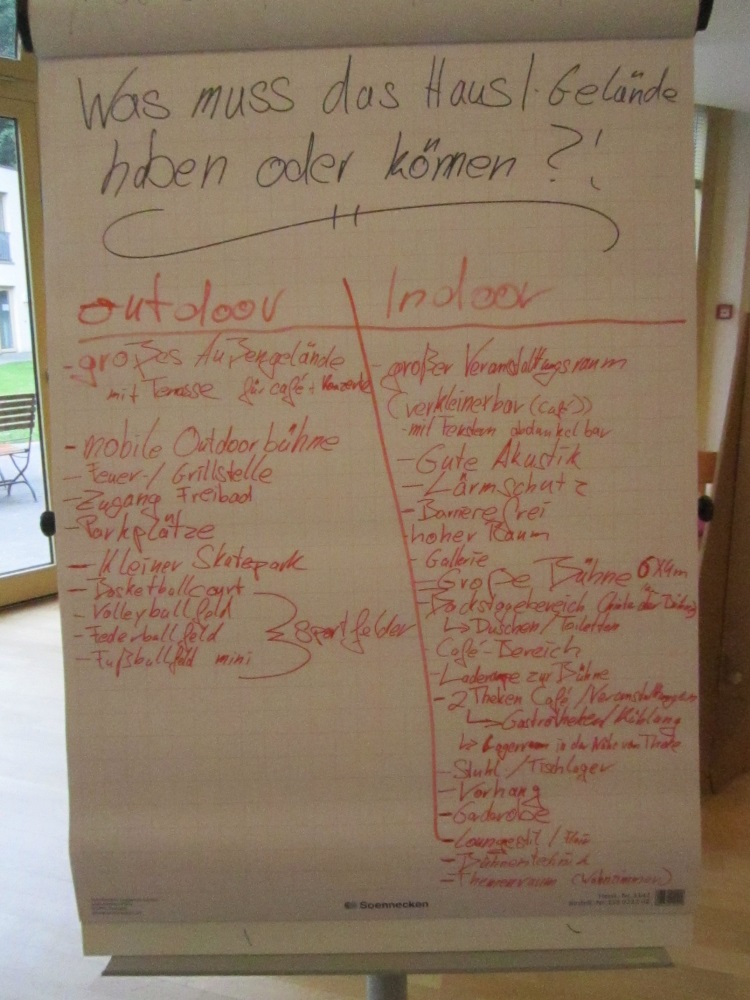 Was muss das Haus/Gelände
haben oder können ?!
outdoor
- großes Außengelände
mit Terasse für café + Konzerte
- mobile Outdoorbühne
- Feuer-/Grillstelle
- Zugang Freibad
- Parkplätze
- Kleiner Skatepark
- Basketballcourt
- Volleyballfeld
- Federballfeld
- Fußballfeld mini
Sportfelder
Indoor
- großer Veranstaltungsraum
(verkleinerbar (Café))
- mit Fenstern abdunkelbar
- Gute Akustik
- Lärmschutz
- Barrierefrei
- hoher Raum
- Gallerie
- Große Bühne 6x4m
- Backstagebereich (Nähe der Bühne)
↳ Duschen/Toiletten
- Café-Bereich
- Laderampe zur Bühne
- 2 Theken Café/Veranstaltungen
↳ Gastrotheken/Kühlung
↳ Lagerraum in der Nähe von Theke
- Stuhl/Tischlager
- Vorhang
- Gaderobe
- Loungestil/
- Bühnentechnik
- Themenraum (Wohnzimmer)
Soennecken